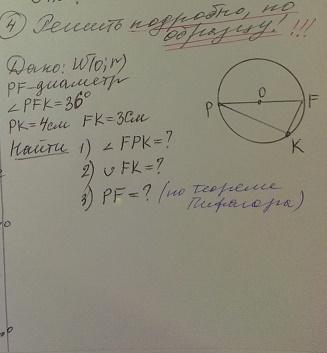 ④ Решить подробно, по
образцу! !!!
Дано: W(o;r)
PF-диаметр
∠PFK=36°
PK=4см FK=3см
Найти 1) ∠FPK=?
2) ∪FK=?
3) PF=? (по теореме
Пифагора)
P O F
K